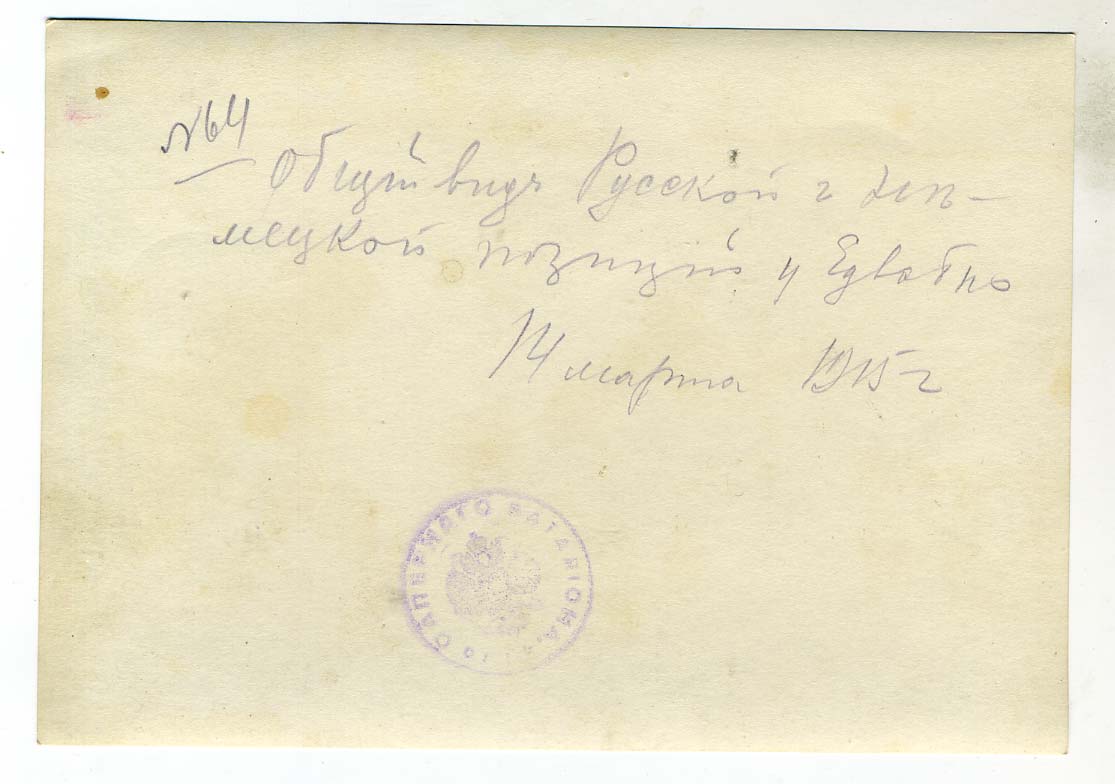 №64
Общій видъ Русской и Нѣ-
мецкой позицій у Едвабно
14 марта 1915 г
САПЕРНАГО БАТАЛІОНА